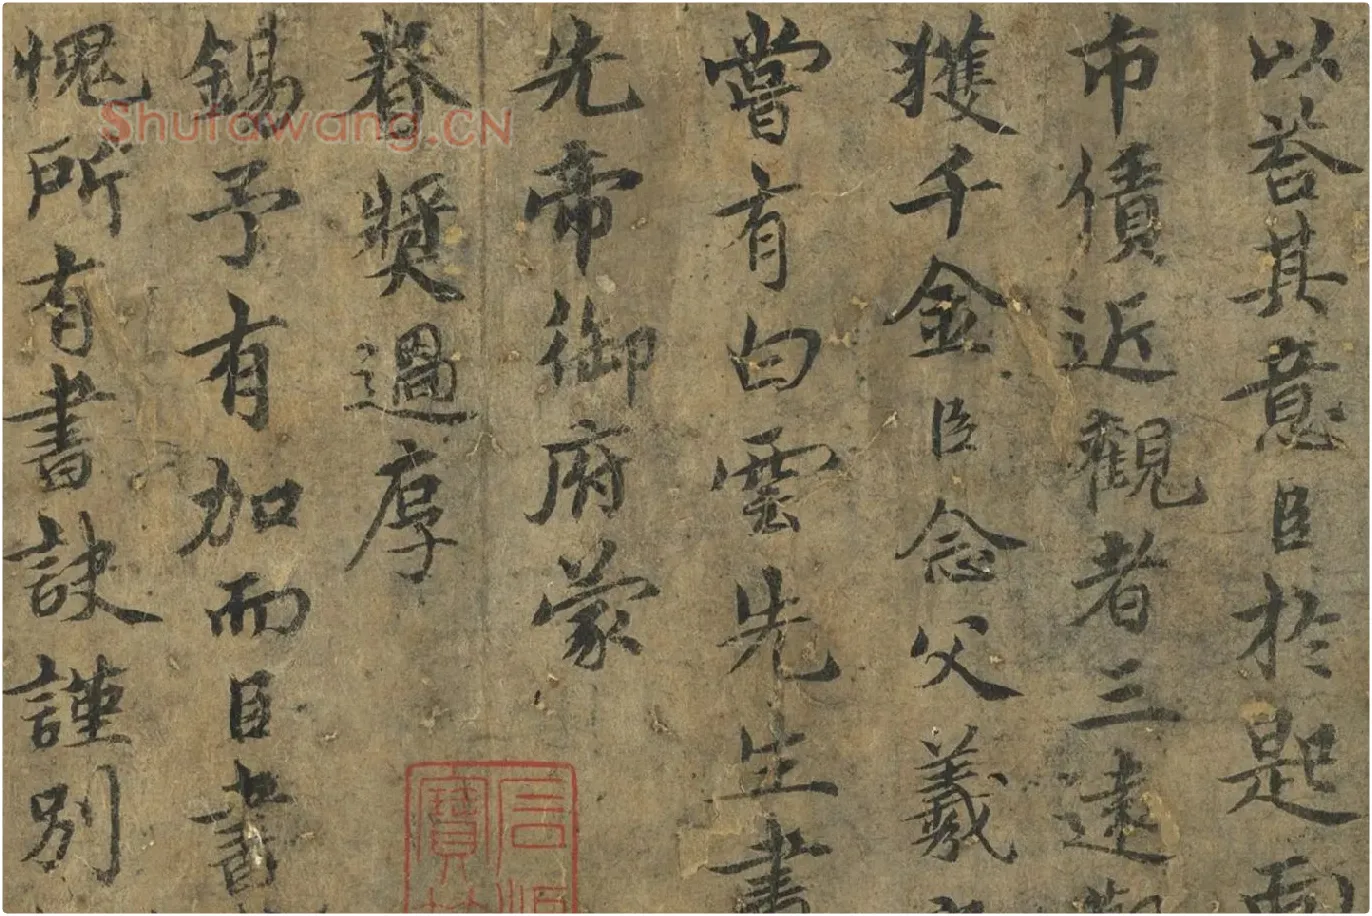 以荅其意臣於是
市債近觀者三遠
獲千金臣念父羲
嘗有白雲先生書
先帝御府蒙
眷獎過厚
錫予有加而臣書
愧所有書訣謹別
Shufawang.CN